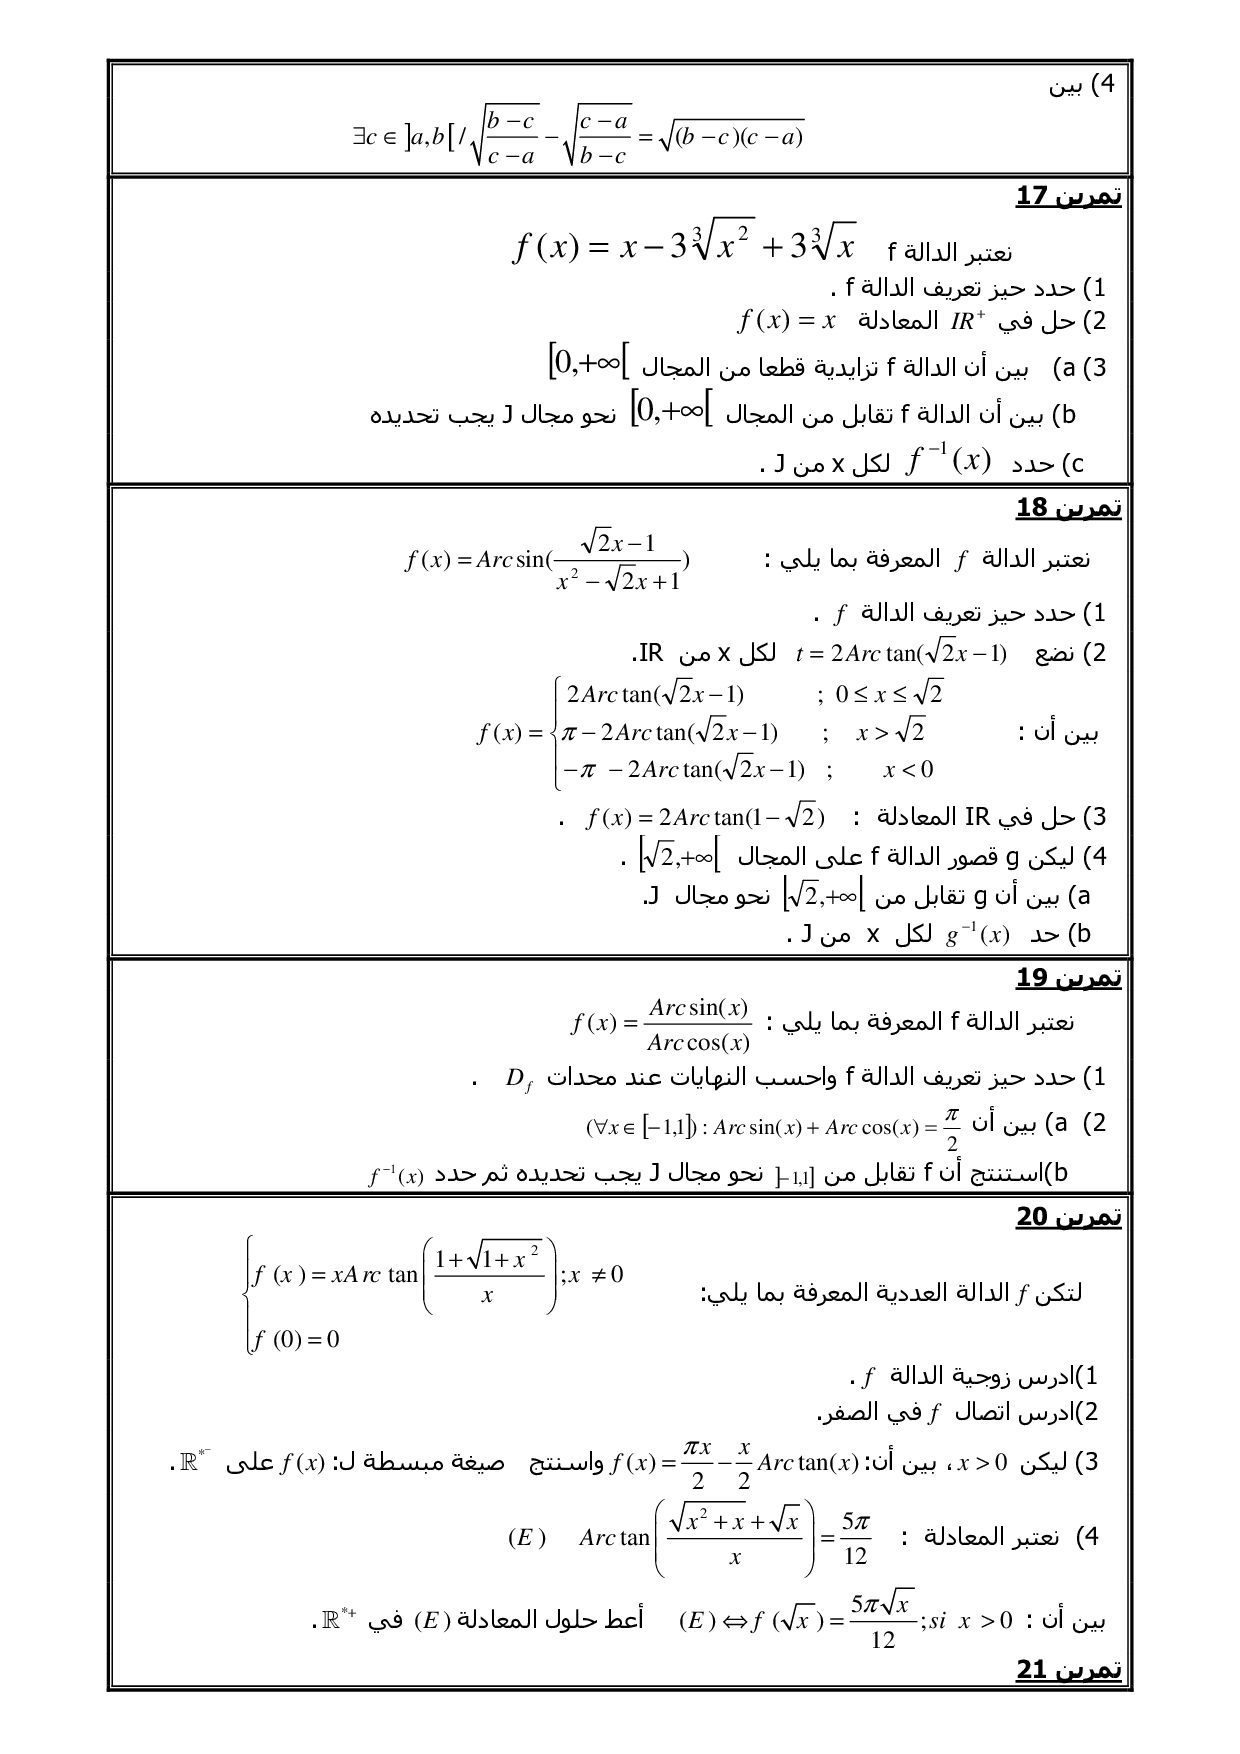 4) بين
∃c ∈ ]a,b[ / √((b−c)/(c−a)) − √((c−a)/(b−c)) = √((b−c)(c−a))
تمرين 17
نعتبر الدالة f   f(x) = x − 3∛(x²) + 3∛x
1) حدد حيز تعريف الدالة f .
2) حل في IR⁺ المعادلة f(x) = x
3) a) بين أن الدالة f تزايدية قطعا من المجال [0,+∞[
b) بين أن الدالة f تقابل من المجال [0,+∞[ نحو مجال J يجب تحديده
c) حدد f⁻¹(x) لكل x من J .
تمرين 18
نعتبر الدالة f المعرفة بما يلي : f(x) = Arcsin((√2x−1)/(x²−√2x+1))
1) حدد حيز تعريف الدالة f .
2) نضع t = 2Arctan(√2x−1) لكل x من IR.
بين أن : f(x) = { 2Arctan(√2x−1) ; 0 ≤ x ≤ √2
π − 2Arctan(√2x−1) ; x > √2
−π − 2Arctan(√2x−1) ; x < 0
3) حل في IR المعادلة : f(x) = 2Arctan(1−√2) .
4) ليكن g قصور الدالة f على المجال [√2,+∞[ .
a) بين أن g تقابل من [√2,+∞[ نحو مجال J.
b) حد g⁻¹(x) لكل x من J .
تمرين 19
نعتبر الدالة f المعرفة بما يلي : f(x) = Arcsin(x)/Arccos(x)
1) حدد حيز تعريف الدالة f واحسب النهايات عند محدات D_f .
2) a) بين أن (∀x ∈ [−1,1]) : Arcsin(x) + Arccos(x) = π/2
b)استنتج أن f تقابل من ]−1,1] نحو مجال J يجب تحديده ثم حدد f⁻¹(x)
تمرين 20
لتكن f الدالة العددية المعرفة بما يلي: { f(x) = xArctan((1+√(1+x²))/x) ; x ≠ 0
f(0) = 0
1)ادرس زوجية الدالة f .
2)ادرس اتصال f في الصفر.
3) ليكن x > 0 ، بين أن: f(x) = πx/2 − x/2 Arctan(x) واسنتج صيغة مبسطة ل: f(x) على ℝ*⁻ .
4) نعتبر المعادلة : Arctan((√(x²+x)+√x)/x) = 5π/12 (E)
بين أن : (E) ⇔ f(√x) = 5π√x/12 ; si x > 0 أعط حلول المعادلة (E) في ℝ*⁺ .
تمرين 21